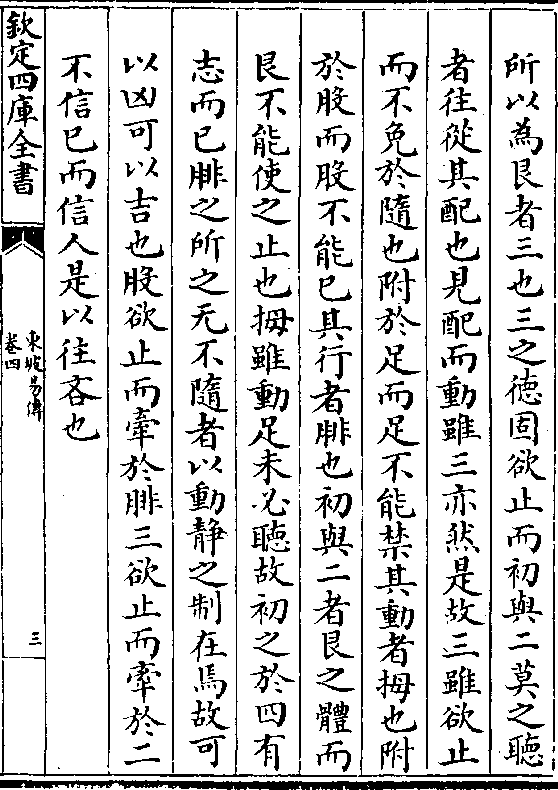 所以為艮者三也三之徳固欲止而初與二莫之聽
者往從其配也見配而動雖三亦然是故三雖欲止
而不免於隨也附於足而足不能禁其動者拇也附
於股而股不能已其行者腓也初與二者艮之體而
艮不能使之止也拇雖動足未必聽故初之於四有
志而已腓之所之无不隨者以動静之制在焉故可
以凶可以吉也股欲止而牽於腓三欲止而牽於二
不信已而信人是以往吝也
欽定四庫全書
東坡易傳
卷四
三